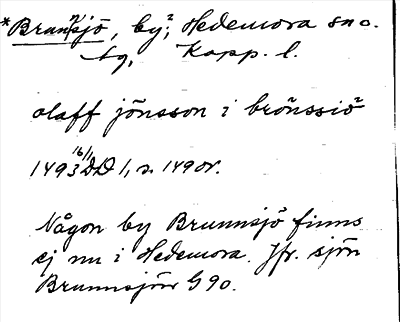 *Brunnsjö, by,² Hedemora sn o.
tg, Kopp. l.
olaff jönsson i brönssio²
1493 16/1, DD 1, n. 149 or.
Någon by Brunnsjö finns
ej nu i Hedemora. Jfr. sjön
Brunnsjön G 90.